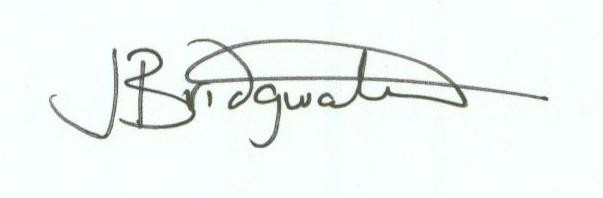 J Bridgwater